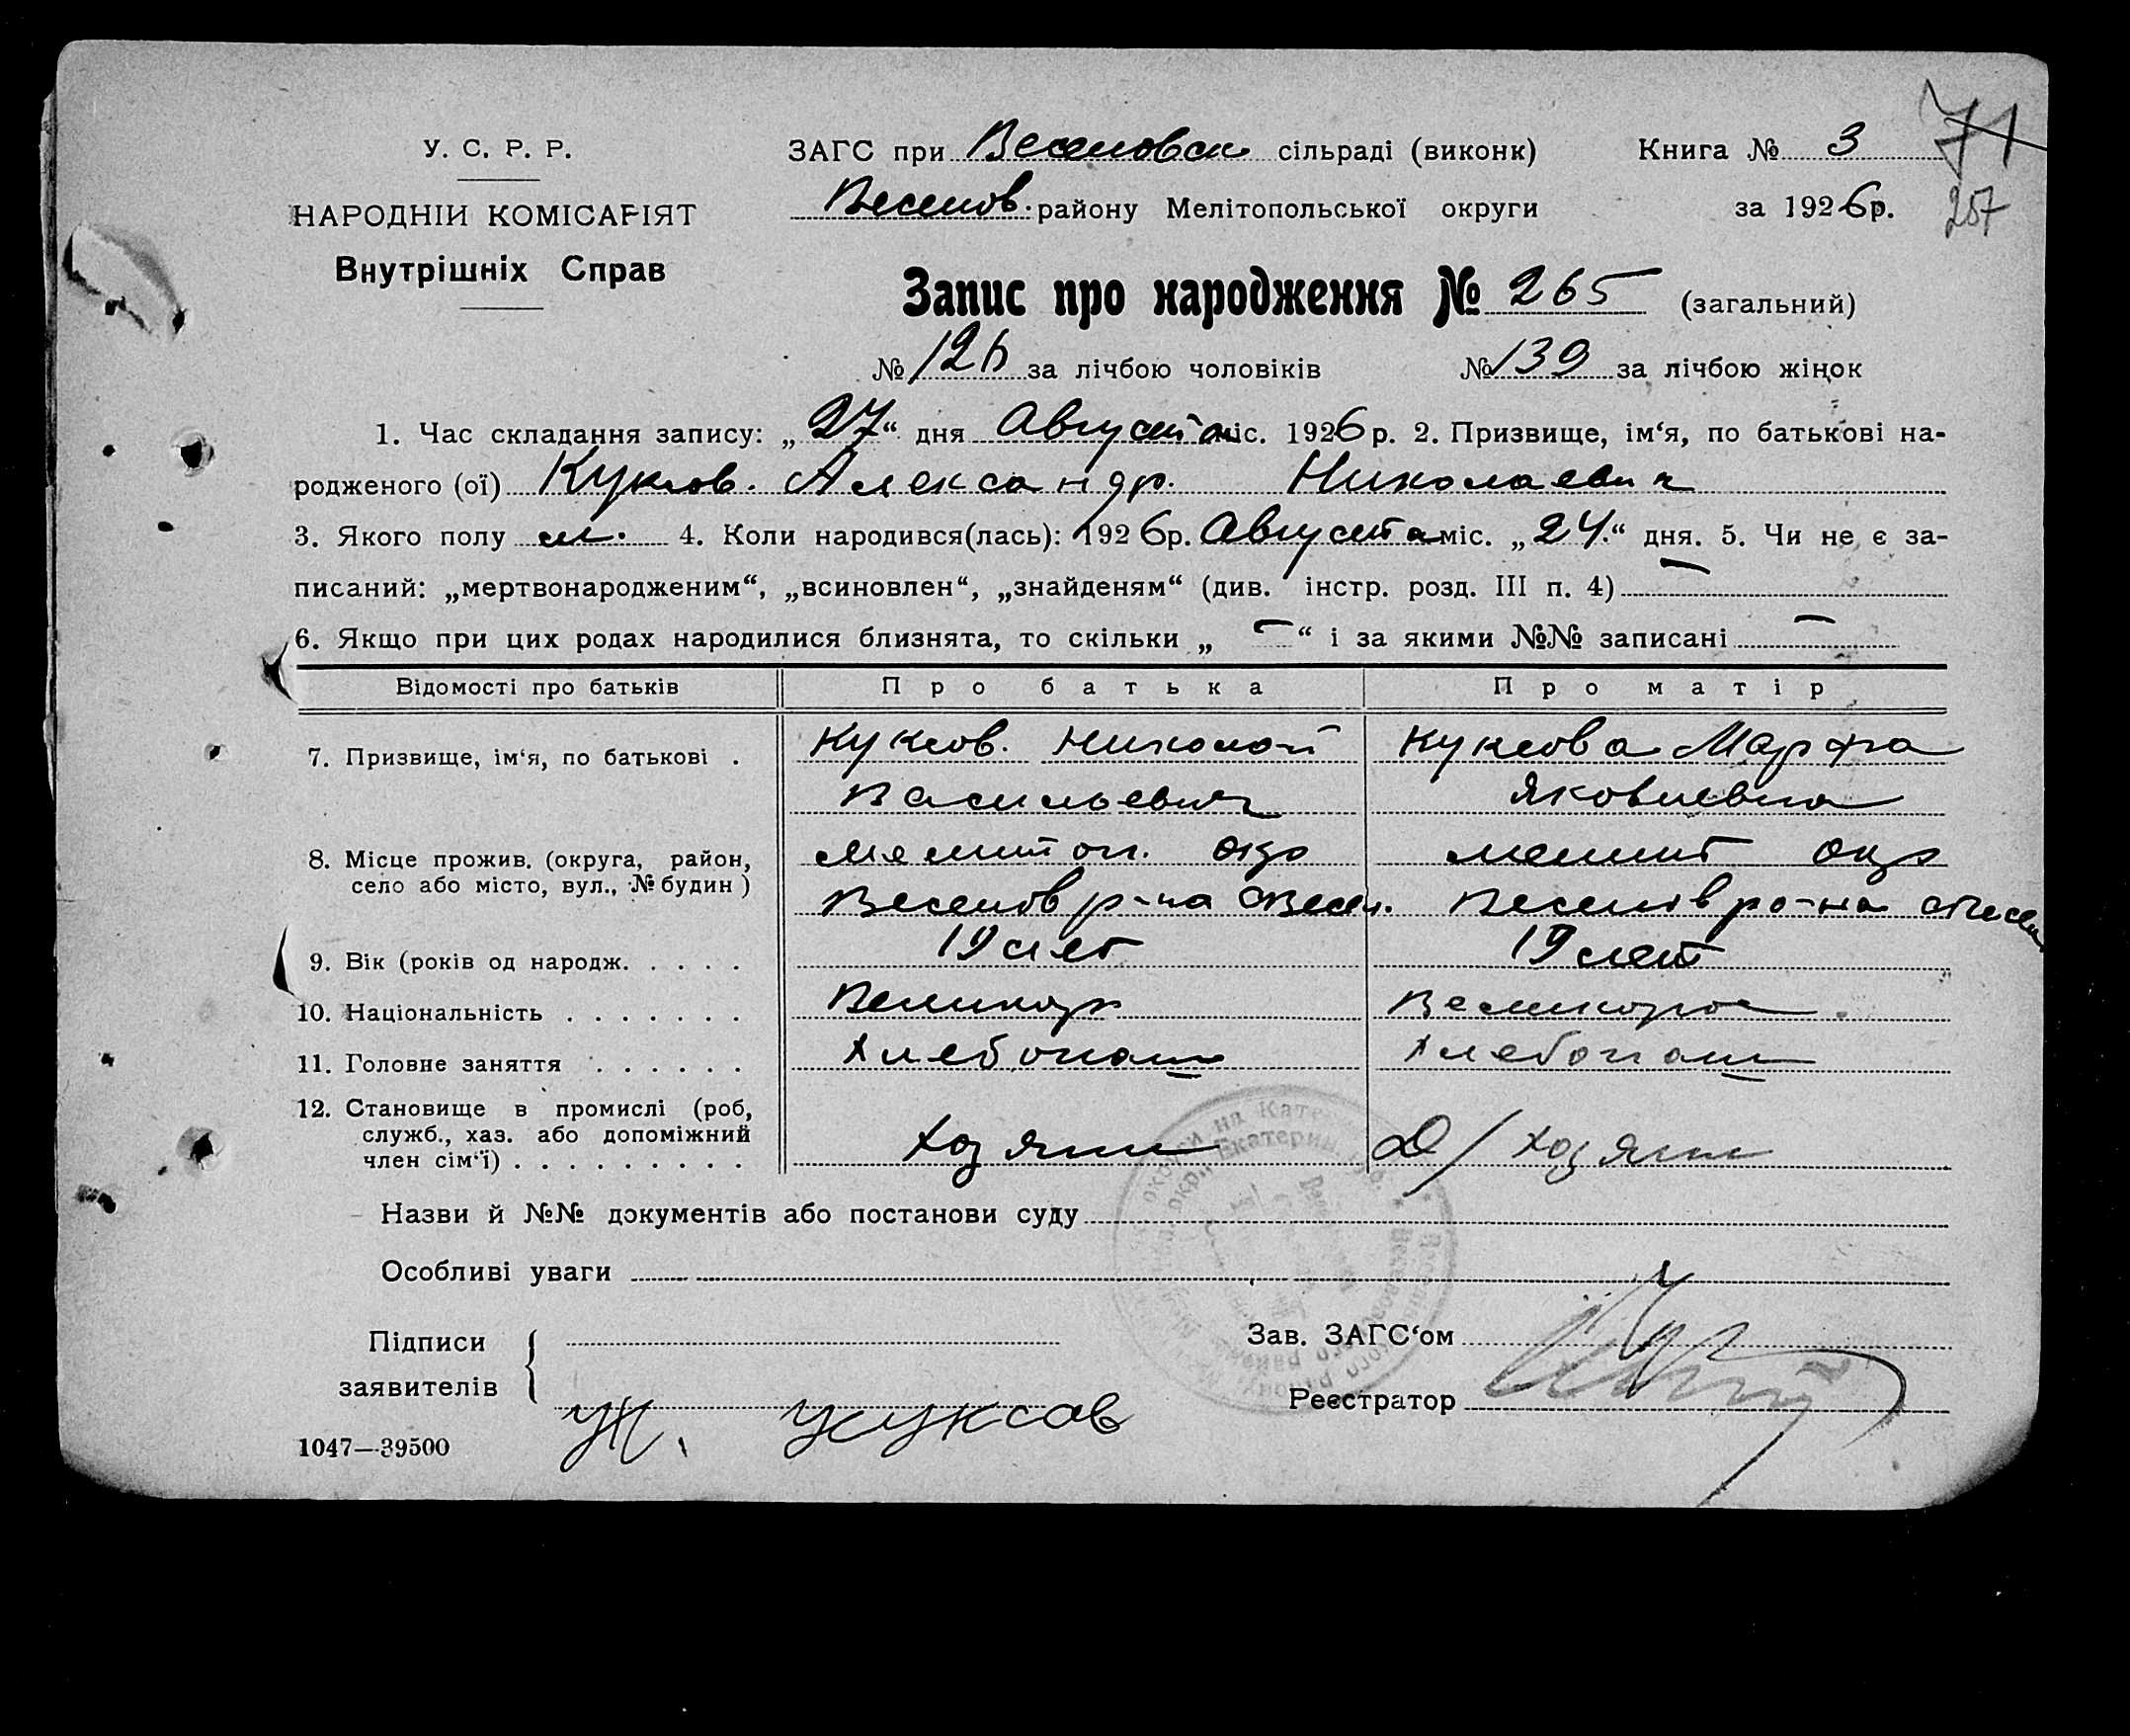 71
У. С. Р. Р.
ЗАГС при Веселовск сільраді (виконк) Книга № 3
НАРОДНІЙ КОМІСАРІЯТ Веселов. району Мелітопольської округи за 1926р. 257
Внутрішніх Справ
Запис про народження № 265 (загальний)
№ 126 за лічбою чоловіків № 139 за лічбою жінок
1. Час складання запису: „27“ дня Августа міс. 1926 р. 2. Призвище, ім‘я, по батькові на-
родженого (ої) Куксов. Александр. Николаевич
3. Якого полу м. 4. Коли народився(лась): 1926р. Августа міс. „24.“ дня. 5. Чи не є за-
писаний: „мертвонародженим“, „всиновлен“, „знайденям“ (див. інстр. розд. III п. 4) —
6. Якщо при цих родах народилися близнята, то скільки „ — “ і за якими №№ записані —
Відомості про батьків Про батька Про матір
7. Призвище, ім‘я, по батькові . Куксов. Николай Куксова Марфа
Васильевич Яковлевна
8. Місце прожив. (округа, район, Мелитоп. окр Мелит окр
село або місто, вул., № будин ) Веселов р-на с Весел. Веселов ро-на с Весел
9. Вік (років од народж. . . . . 19 лет 19 лет
10. Національність . . . . . . . Великор Великорос
11. Головне заняття . . . . . . Хлебопаш Хлебопаш
12. Становище в промислі (роб,
служб., хаз. або допоміжний
член сім‘ї) . . . . . . . . . Хозяин Д/хозяин
Назви й №№ документів або постанови суду
Особливі уваги
Підписи Зав. ЗАГС‘ом
заявителів Реєстратор
Н. Куксов
1047—39500